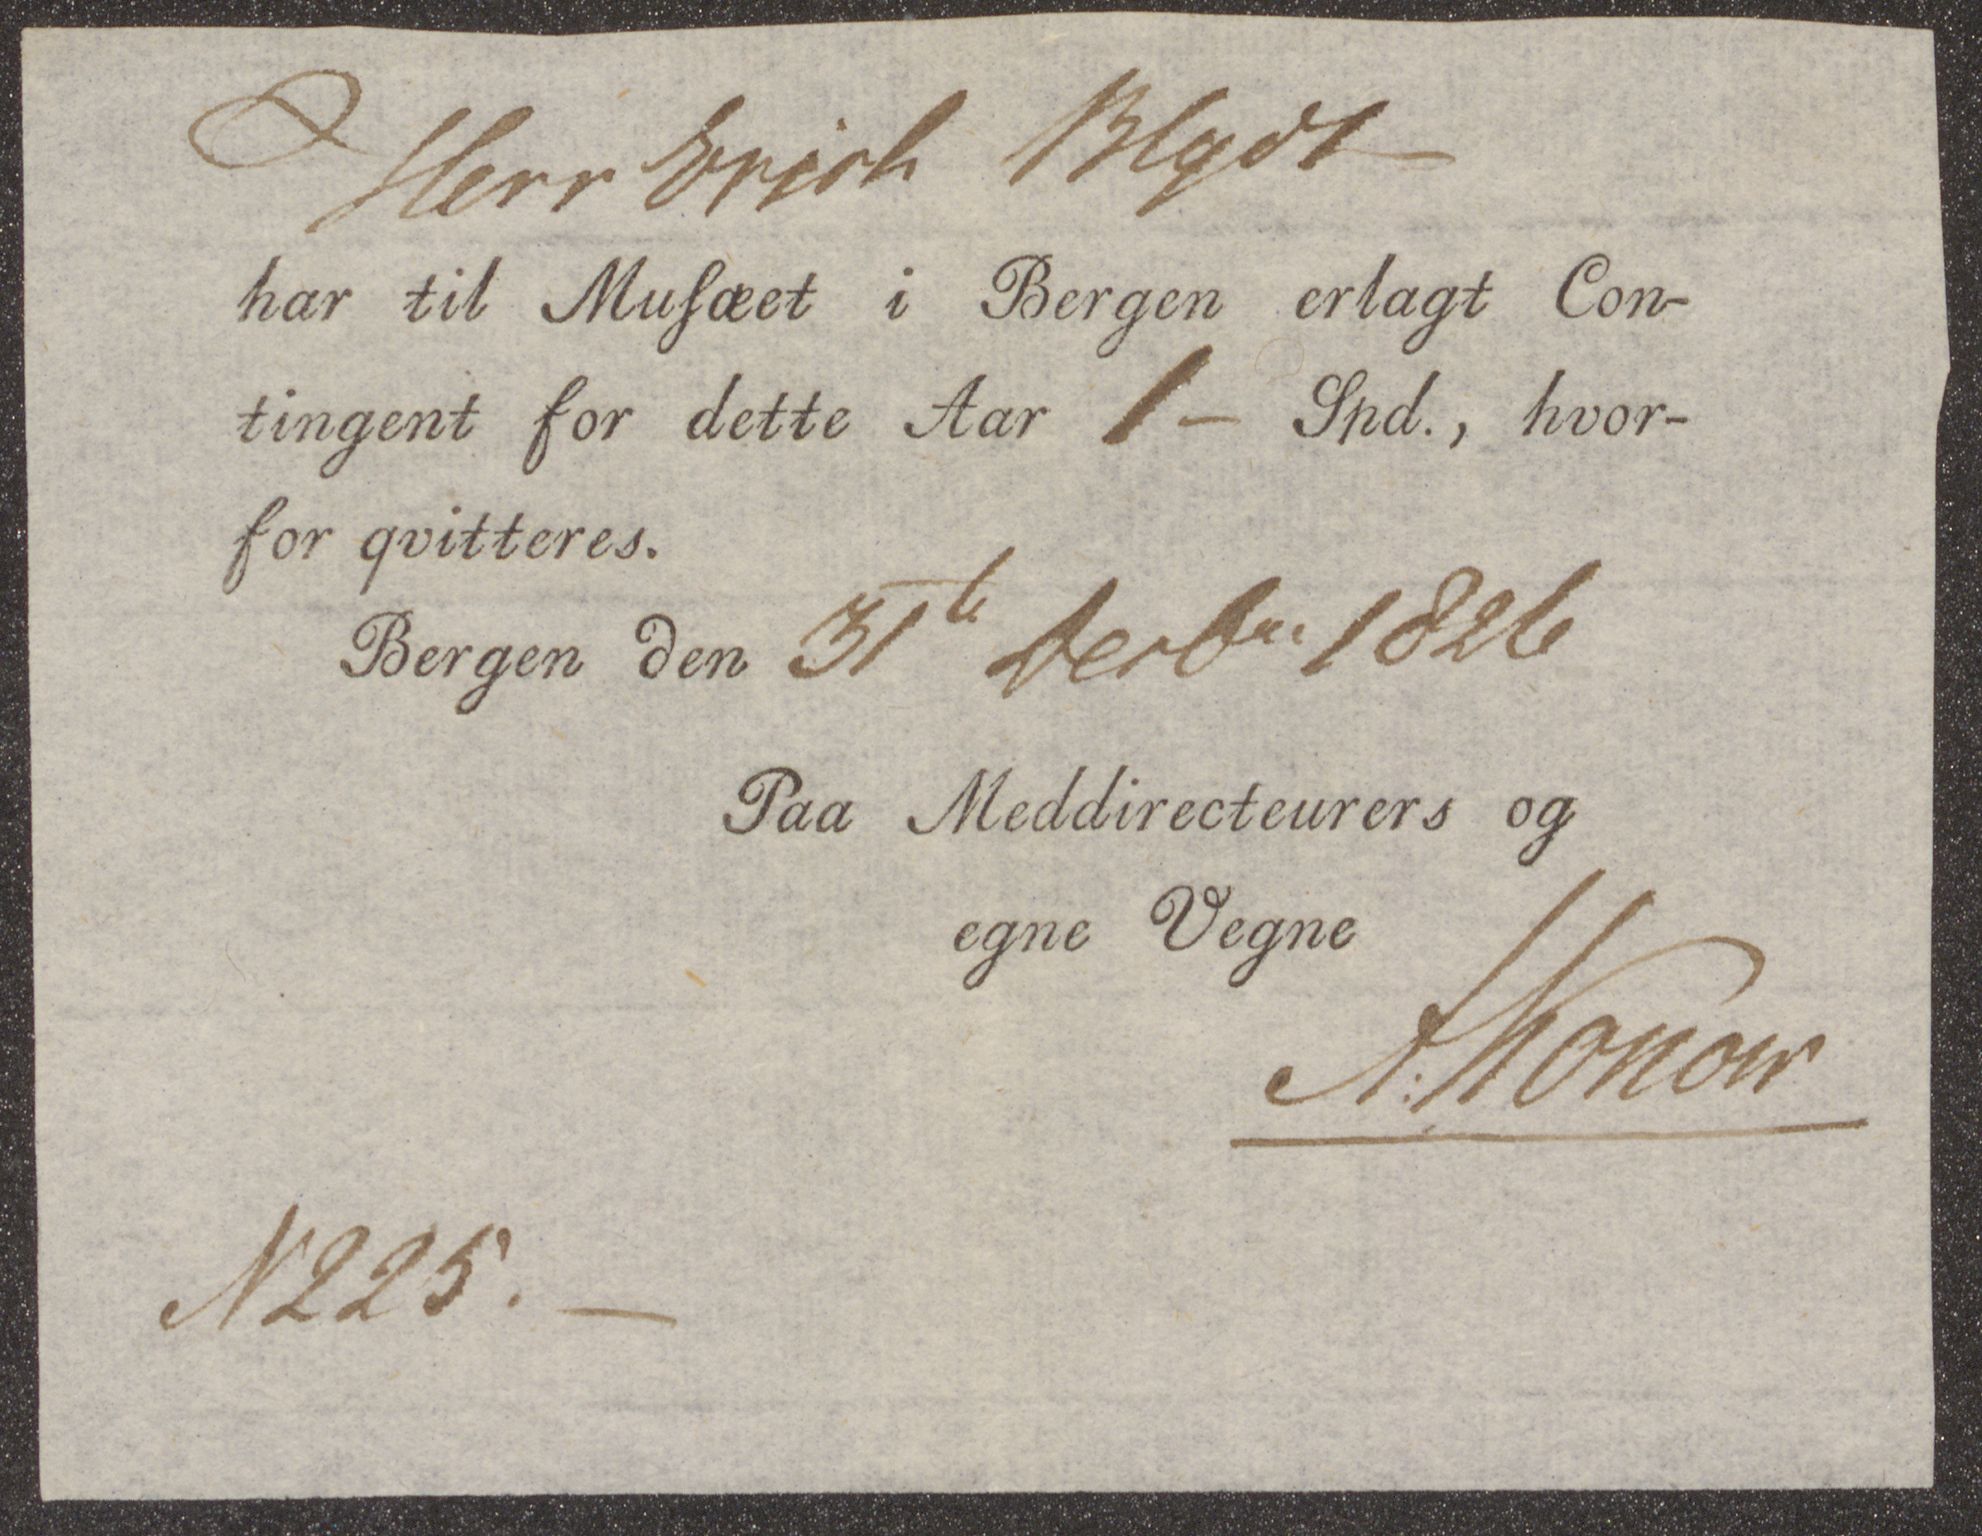 Herr Erich Blydt
har til Muſæet i Bergen erlagt Con-
tingent for dette Aar 1 – Spd., hvor-
for qvitteres.
Bergen den 31te Decbr 1826
Paa Meddirecteurers og
egne Vegne
A: Konow
N 225. —